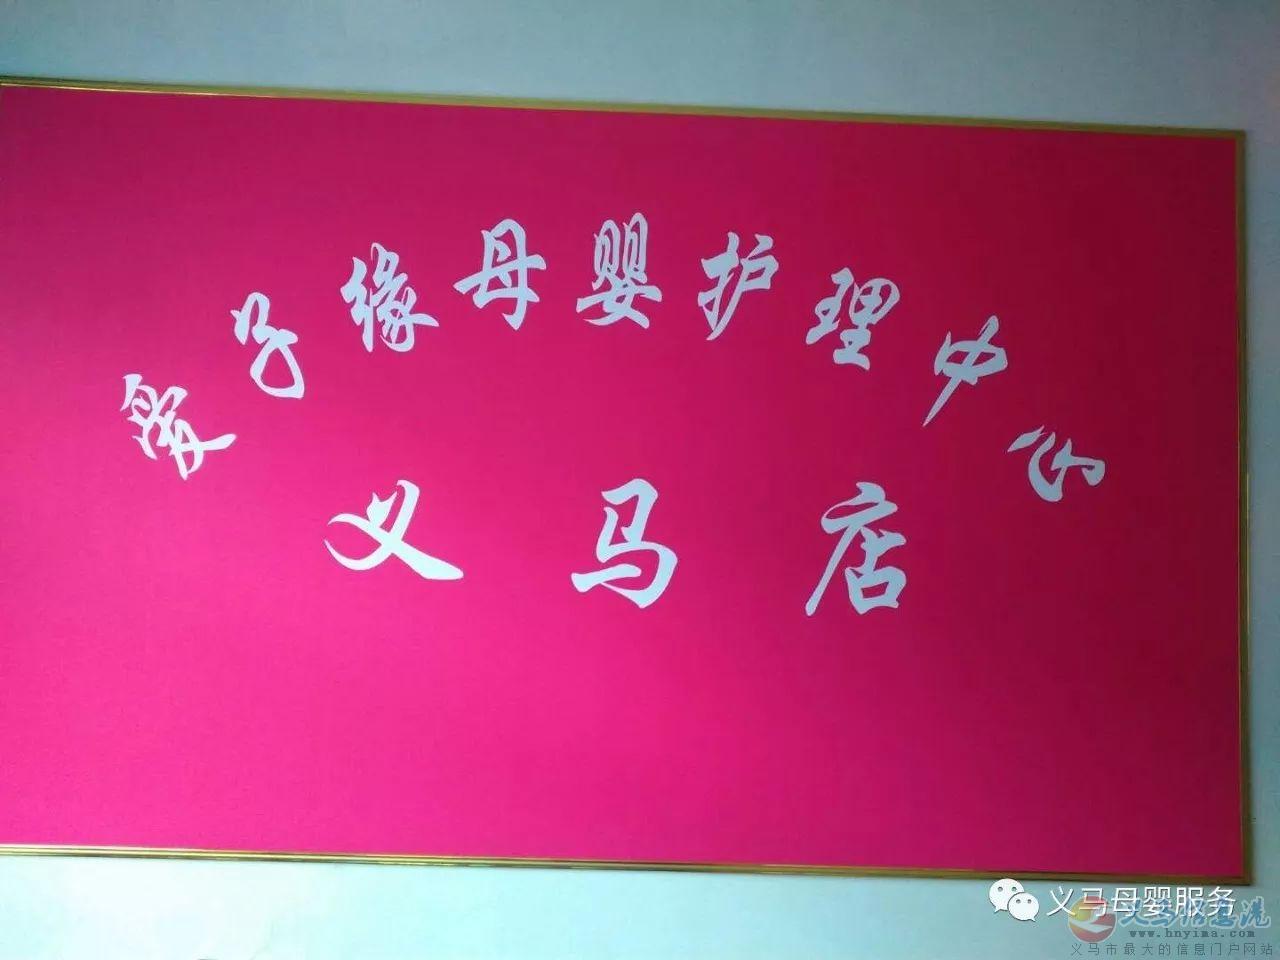 爱子缘母婴护理中心
义马店
义马母婴服务
义马信息港
www.hnyima.com
义马市最大的信息门户网站